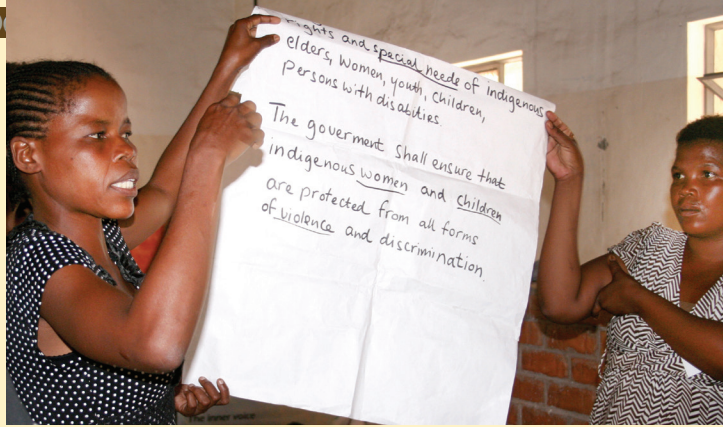 rights and special needs of Indigenous
elders, Women, youth, Children,
Persons with disabilities.
The goverment Shall ensure that
indigenous women and children
are protected from all forms
of violence and discrimination.
The inner voice